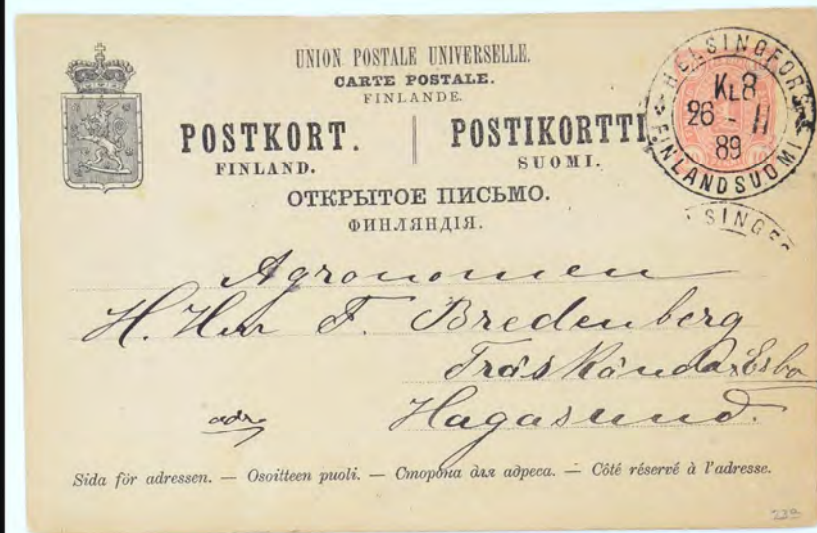 UNION POSTALE UNIVERSELLE.
CARTE POSTALE.
FINLANDE.
POSTKORT. POSTIKORTTI
FINLAND. SUOMI.
ОТКРЫТОЕ ПИСЬМО.
ФИНЛЯНДІЯ.
HELSINGFORS
KL8
26 - 11
89
FINLAND SUOMI
SINGF
Agronomen
H. Herr F. Bredenberg
Träskända Esbo
adr. Hagasund.
Sida för adressen. — Osoitteen puoli. — Сторона для адреса. — Côté réservé à l'adresse.